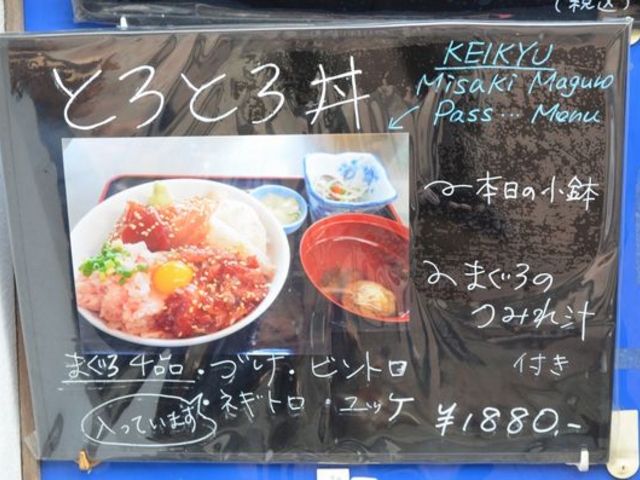 (税込)
とろとろ丼
KEIKYU
Misaki Maguro
Pass… Menu
本日の小鉢
まぐろの
つみれ汁
付き
まぐろ4品・づけ・ビントロ
入っています
・ネギトロ・ユッケ
¥1880,-